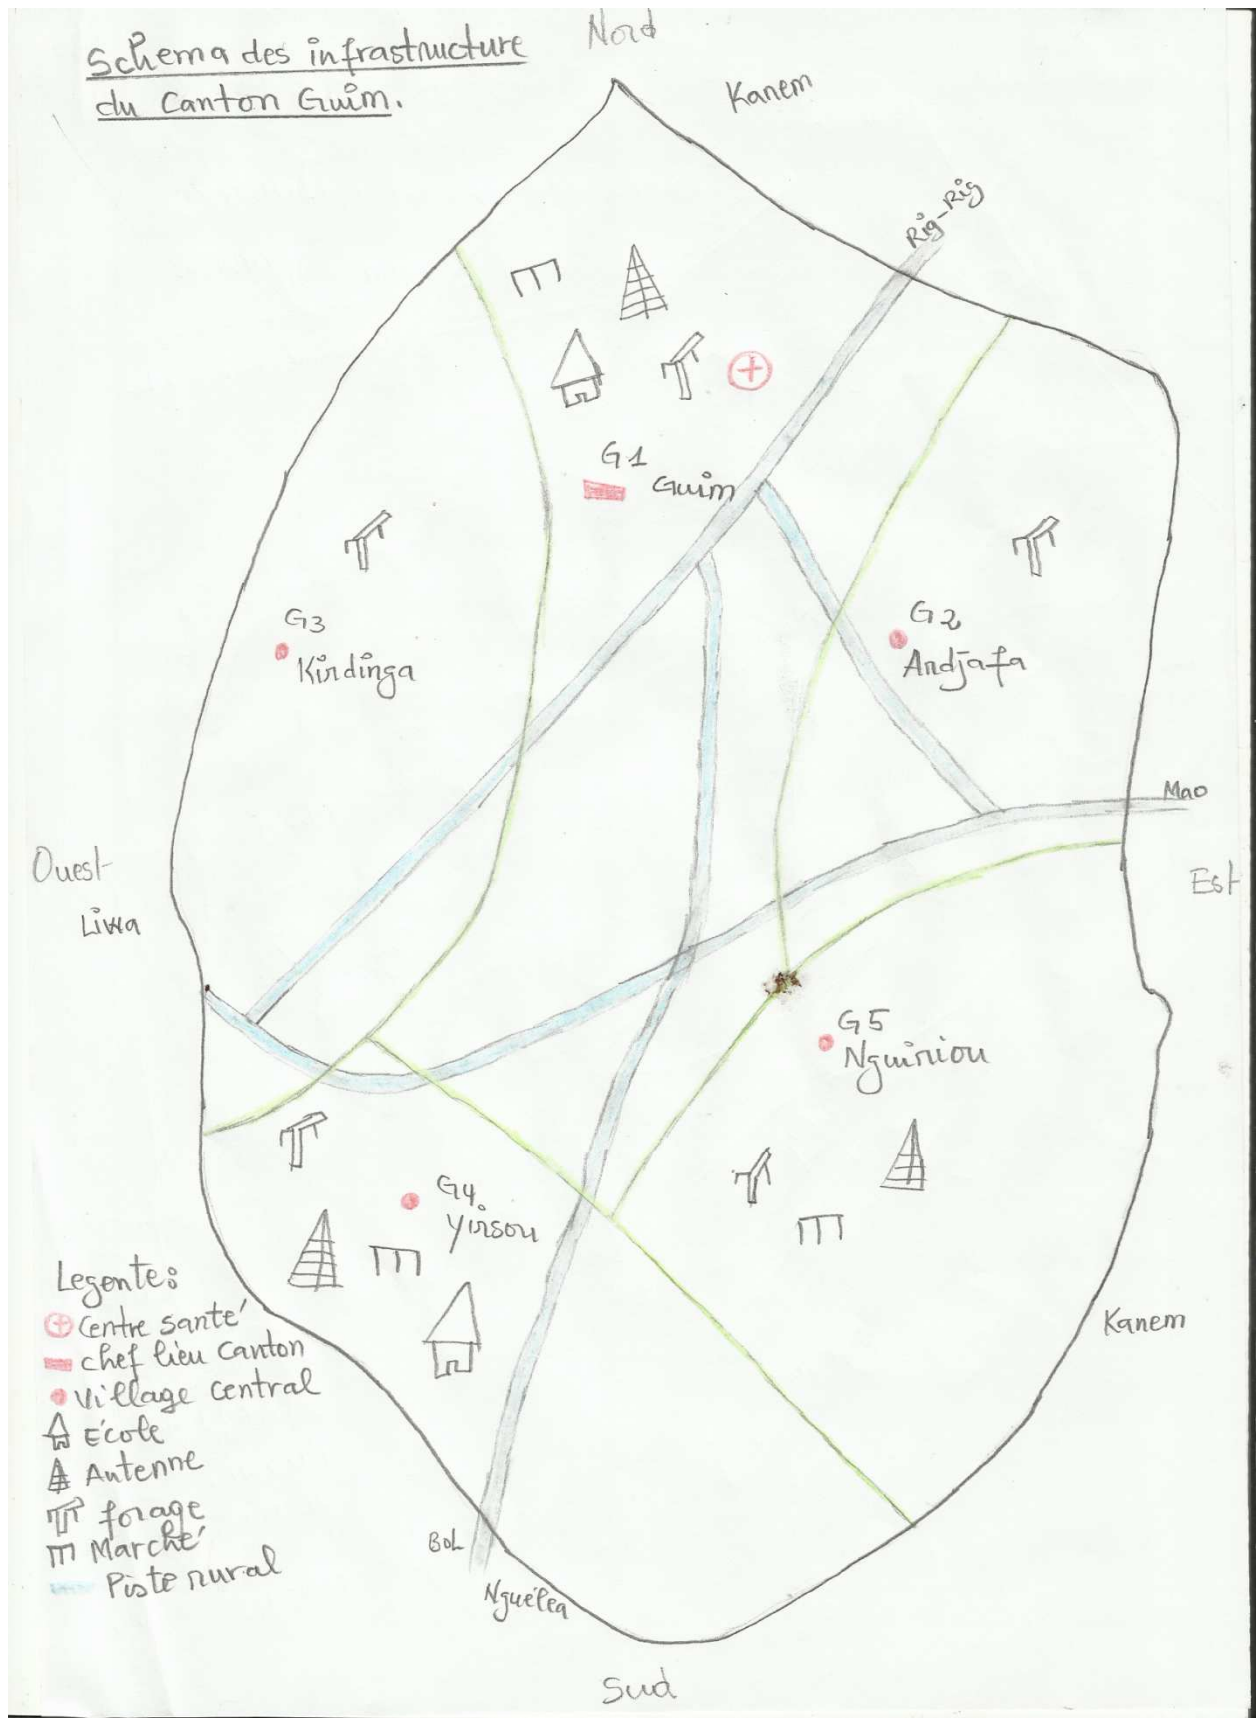 Schema des infrastructure
du Canton Guim.
Nord
Kanem
Rig-Rig
G1
Guim
G3
Kirdinga
G2
Andjafa
Mao
Ouest
Liwa
Est
G5
Nguiriou
G4.
Yirsou
Kanem
Legente:
Centre santé
chef lieu Canton
Village central
École
Antenne
forage
Marché
Piste rural
BOL
Nguéléa
Sud